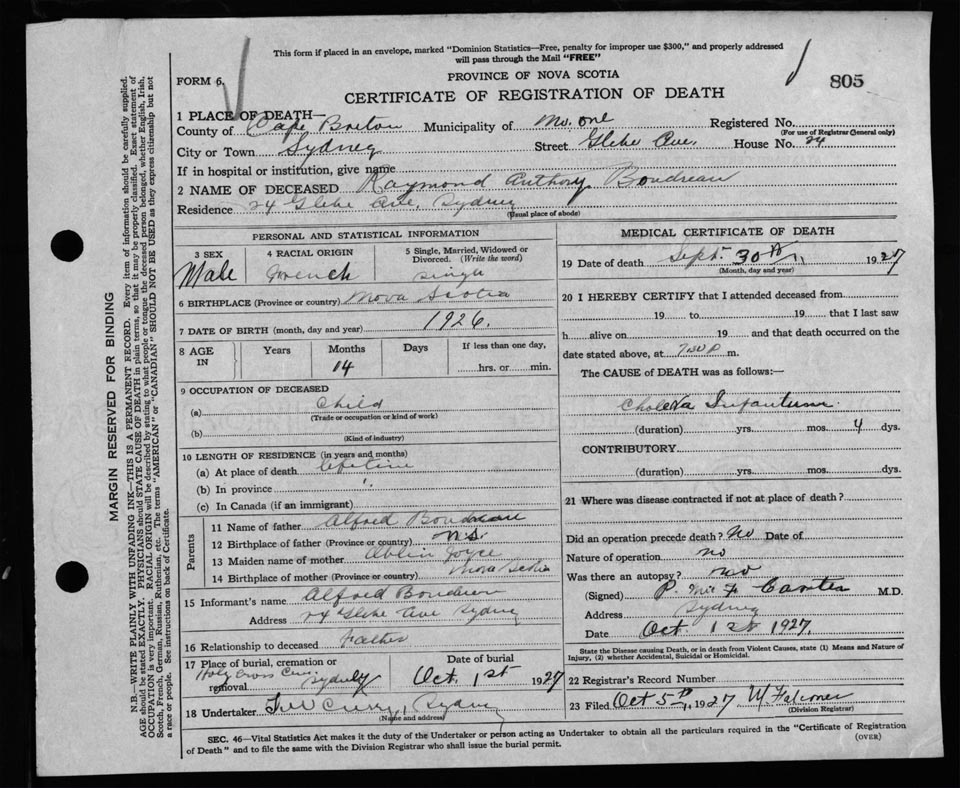 This form if placed in an envelope, marked "Dominion Statistics—Free, penalty for improper use $300," and properly addressed
will pass through the Mail "FREE"
FORM 6.
PROVINCE OF NOVA SCOTIA
805
CERTIFICATE OF REGISTRATION OF DEATH
1 PLACE OF DEATH—
County of Cape Breton Municipality of No. one Registered No.
(For use of Registrar General only)
City or Town Sydney Street Glebe Ave. House No. 24
If in hospital or institution, give name
2 NAME OF DECEASED Raymond Anthony Boudreau
Residence 24 Glebe Ave, Sydney
(Usual place of abode)
PERSONAL AND STATISTICAL INFORMATION
3 SEX 4 RACIAL ORIGIN 5 Single, Married, Widowed or
Divorced. (Write the word)
Male French single
6 BIRTHPLACE (Province or country) Nova Scotia
7 DATE OF BIRTH (month, day and year) 1926.
8 AGE IN Years Months Days If less than one day,
14 hrs. or min.
9 OCCUPATION OF DECEASED
(a) Child
(Trade or occupation or kind of work)
(b)
(Kind of industry)
10 LENGTH OF RESIDENCE (in years and months)
(a) At place of death lifetime
(b) In province "
(c) In Canada (if an immigrant)
Parents
11 Name of father Alfred Boudreau
12 Birthplace of father (Province or country) N.S.
13 Maiden name of mother Joyce
14 Birthplace of mother (Province or country) Nova Scotia
15 Informant's name Alfred Boudreau
Address 24 Glebe Ave Sydney
16 Relationship to deceased Father
17 Place of burial, cremation or Date of burial
removal Holy Cross Cem. Sydney Oct. 1st 1927
18 Undertaker Curry, Sydney
(Name and address)
MEDICAL CERTIFICATE OF DEATH
19 Date of death Sept. 30th, 1927
(Month, day and year)
20 I HEREBY CERTIFY that I attended deceased from
19 to 19 that I last saw
h alive on 19 and that death occurred on the
date stated above, at 7:30 P m.
The CAUSE of DEATH was as follows:—
Cholera Infantum
(duration) yrs. mos. 4 dys.
CONTRIBUTORY
(duration) yrs. mos. dys.
21 Where was disease contracted if not at place of death?
Did an operation precede death? No Date of
Nature of operation no
Was there an autopsy? no
(Signed) P. McF Carter M.D.
Address Sydney
Date Oct 1st 1927.
State the Disease causing Death, or in death from Violent Causes, state (1) Means and Nature of
Injury, (2) whether Accidental, Suicidal or Homicidal.
22 Registrar's Record Number
23 Filed Oct 5th, 1927 W. Falconer
(Division Registrar)
SEC. 46—Vital Statistics Act makes it the duty of the Undertaker or person acting as Undertaker to obtain all the particulars required in the "Certificate of Registration
of Death" and to file the same with the Division Registrar who shall issue the burial permit.
(OVER)
MARGIN RESERVED FOR BINDING
N.B.—WRITE PLAINLY, WITH UNFADING INK—THIS IS A PERMANENT RECORD. Every item of information should be carefully supplied.
AGE should be stated EXACTLY. PHYSICIANS should STATE CAUSE OF DEATH in plain terms, so that it may be properly classified. Exact statement of
OCCUPATION is very important. RACIAL ORIGIN will be described by stating to what people or tongue the deceased person belonged, whether English, Irish,
Scotch, French, German, Russian, Ruthenian, etc. The terms "AMERICAN" or "CANADIAN" SHOULD NOT BE USED as they express citizenship but not
a race or people. See instructions on back of Certificate.